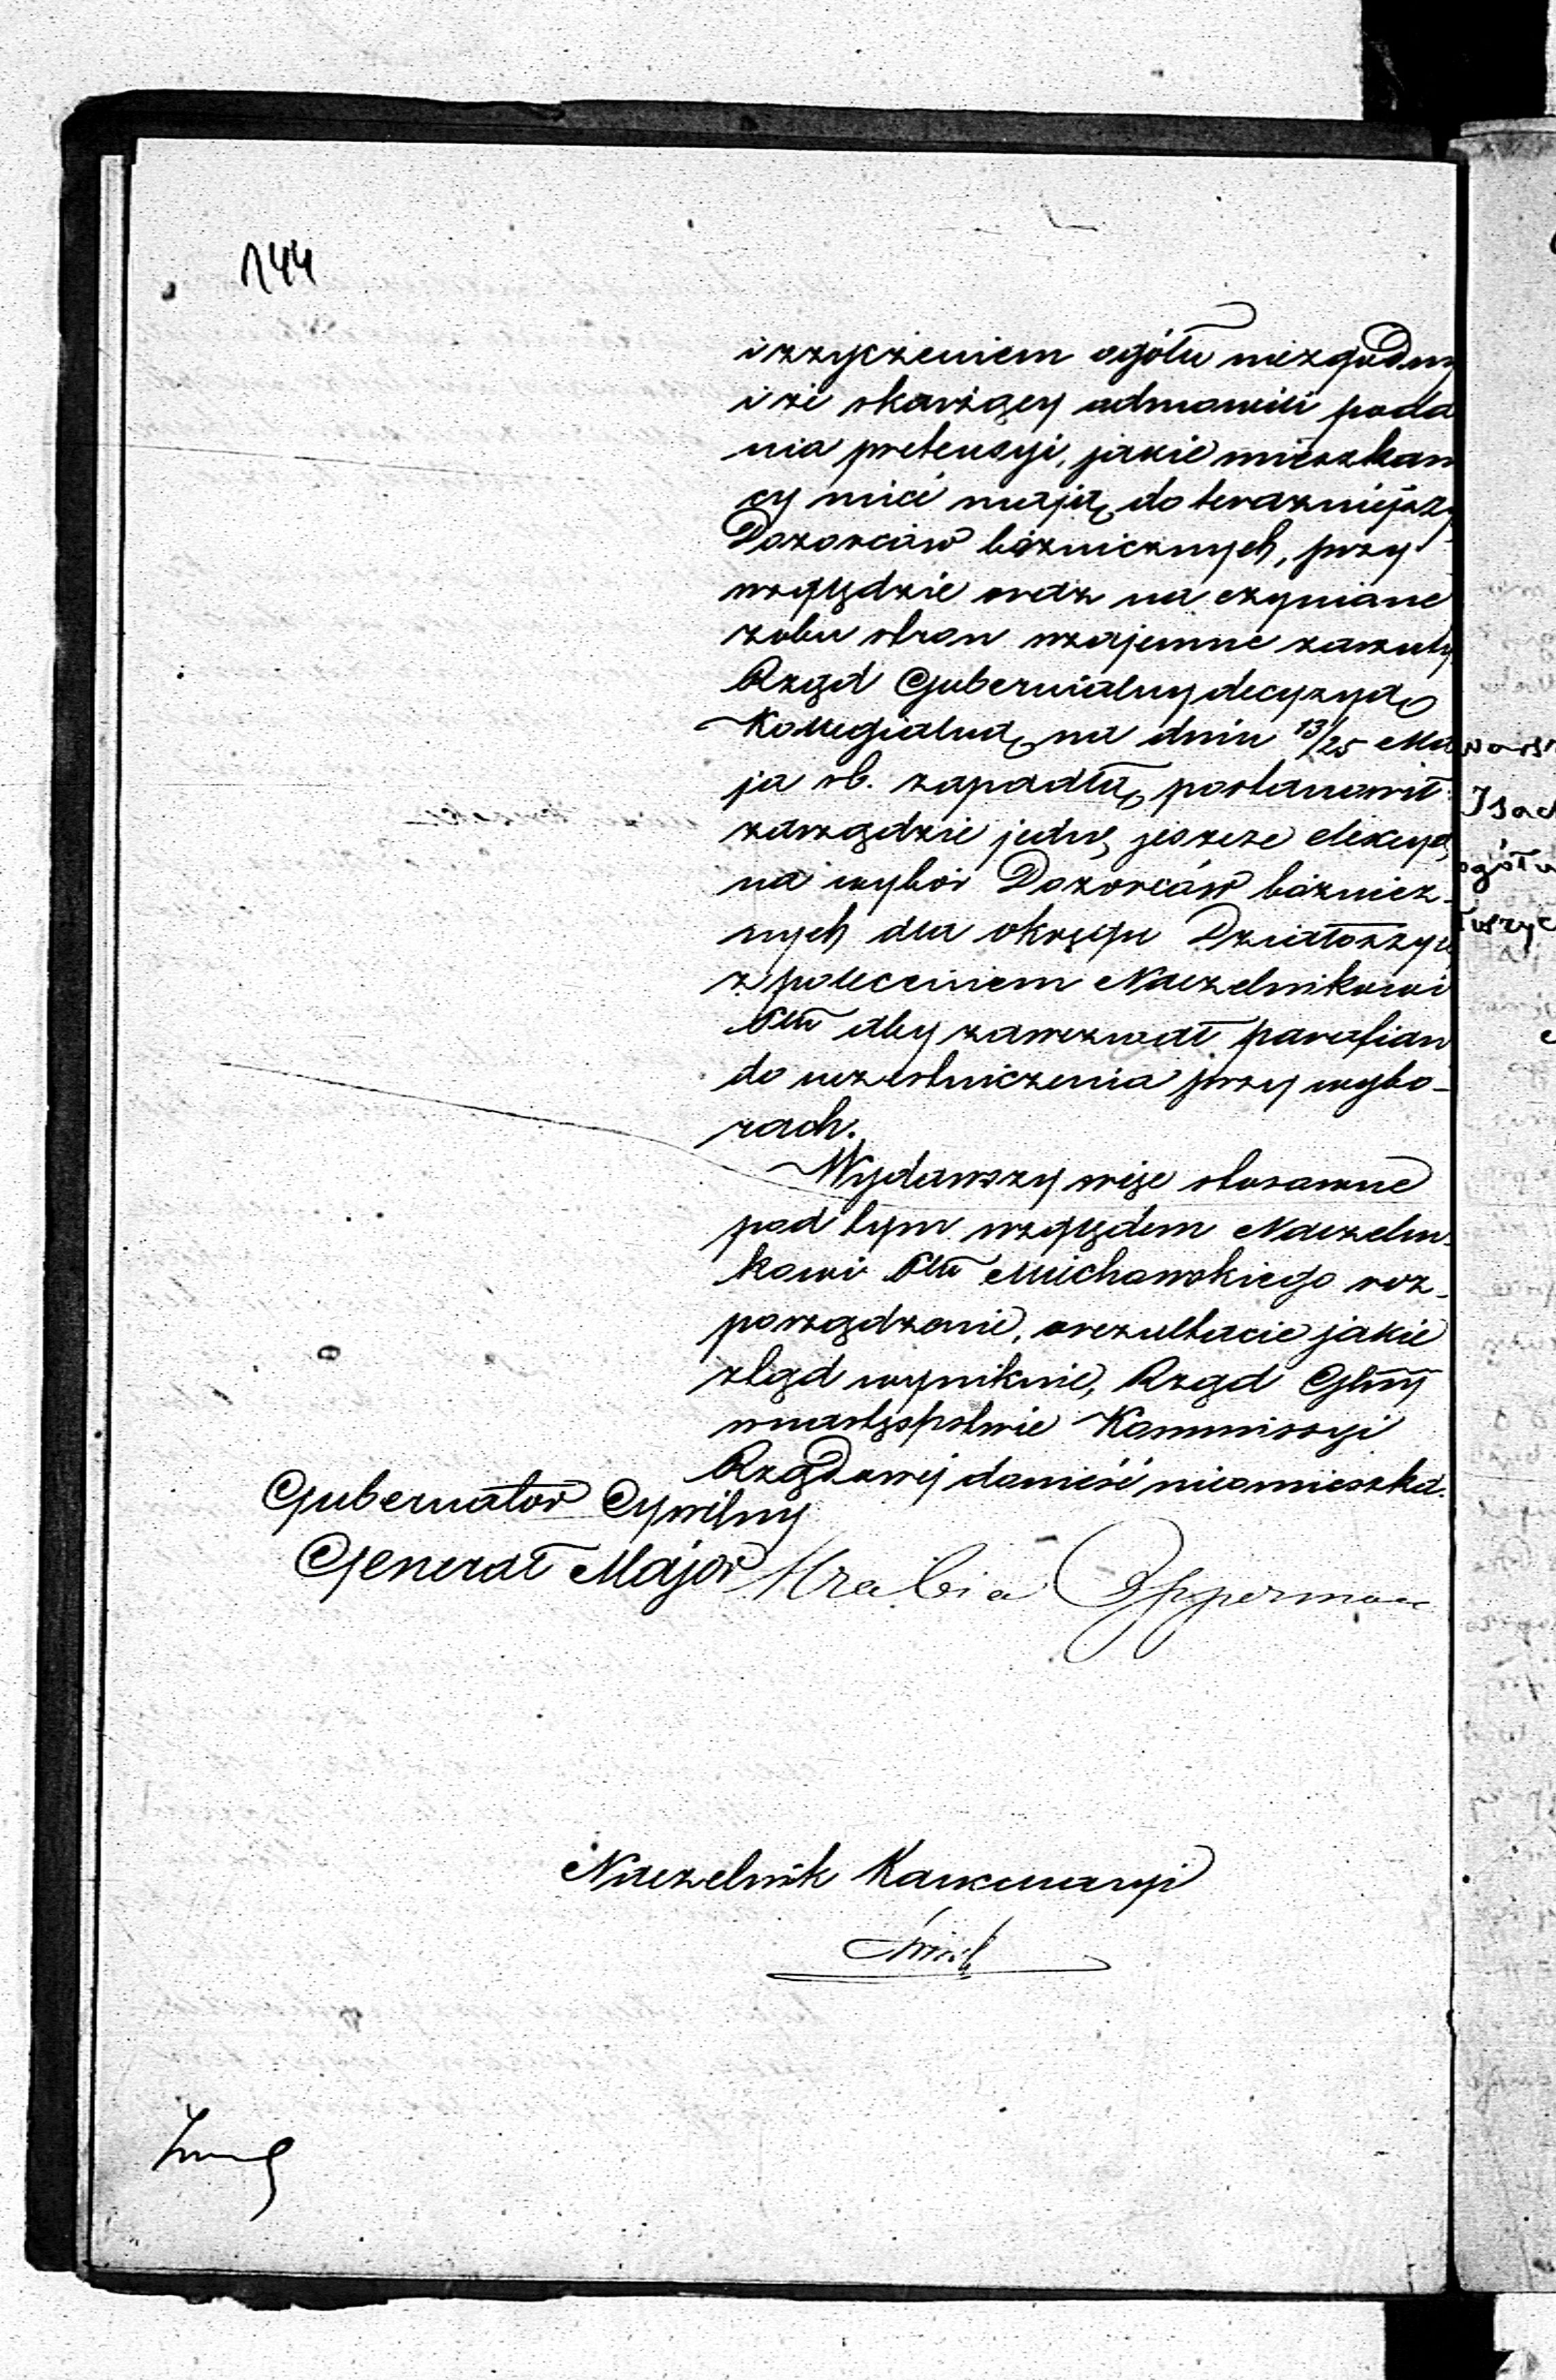 144
i z życzeniem ogółu niezgodny
i że skarżący odmówili poda
nia pretensyi, jakie mieszkań
cy mieć mają do teraźniejszy
Dozorców bóżnicznych, przy
względzie oraz na czynione
z obu stron wzajemne zarzuty
Rząd Gubernialny decyzyą
Kollegialną na dniu 13/25 Ma
ja rb. zapadłą, postanowił
zarządzić jednę jeszcze elekcyą
na wybór Dozorców bóżnicz-
nych dla okręgu Działoszyc
z poleceniem Naczelnikowi
Ptu aby zawezwał parafian
do uczestniczenia przy wybo-
rach.
Wydawszy więc stosowne
pod tym względem Naczelni-
kowi Ptu Miechowskiego roz-
porządzenie, o rezultacie jakie
ztąd wyniknie, Rząd Glny
w następstwie Kommissyi
Rządowej donieść nieomieszka.
Gubernator Cywilny
Generał Major Hrabia Opperman
Naczelnik Kancellaryi